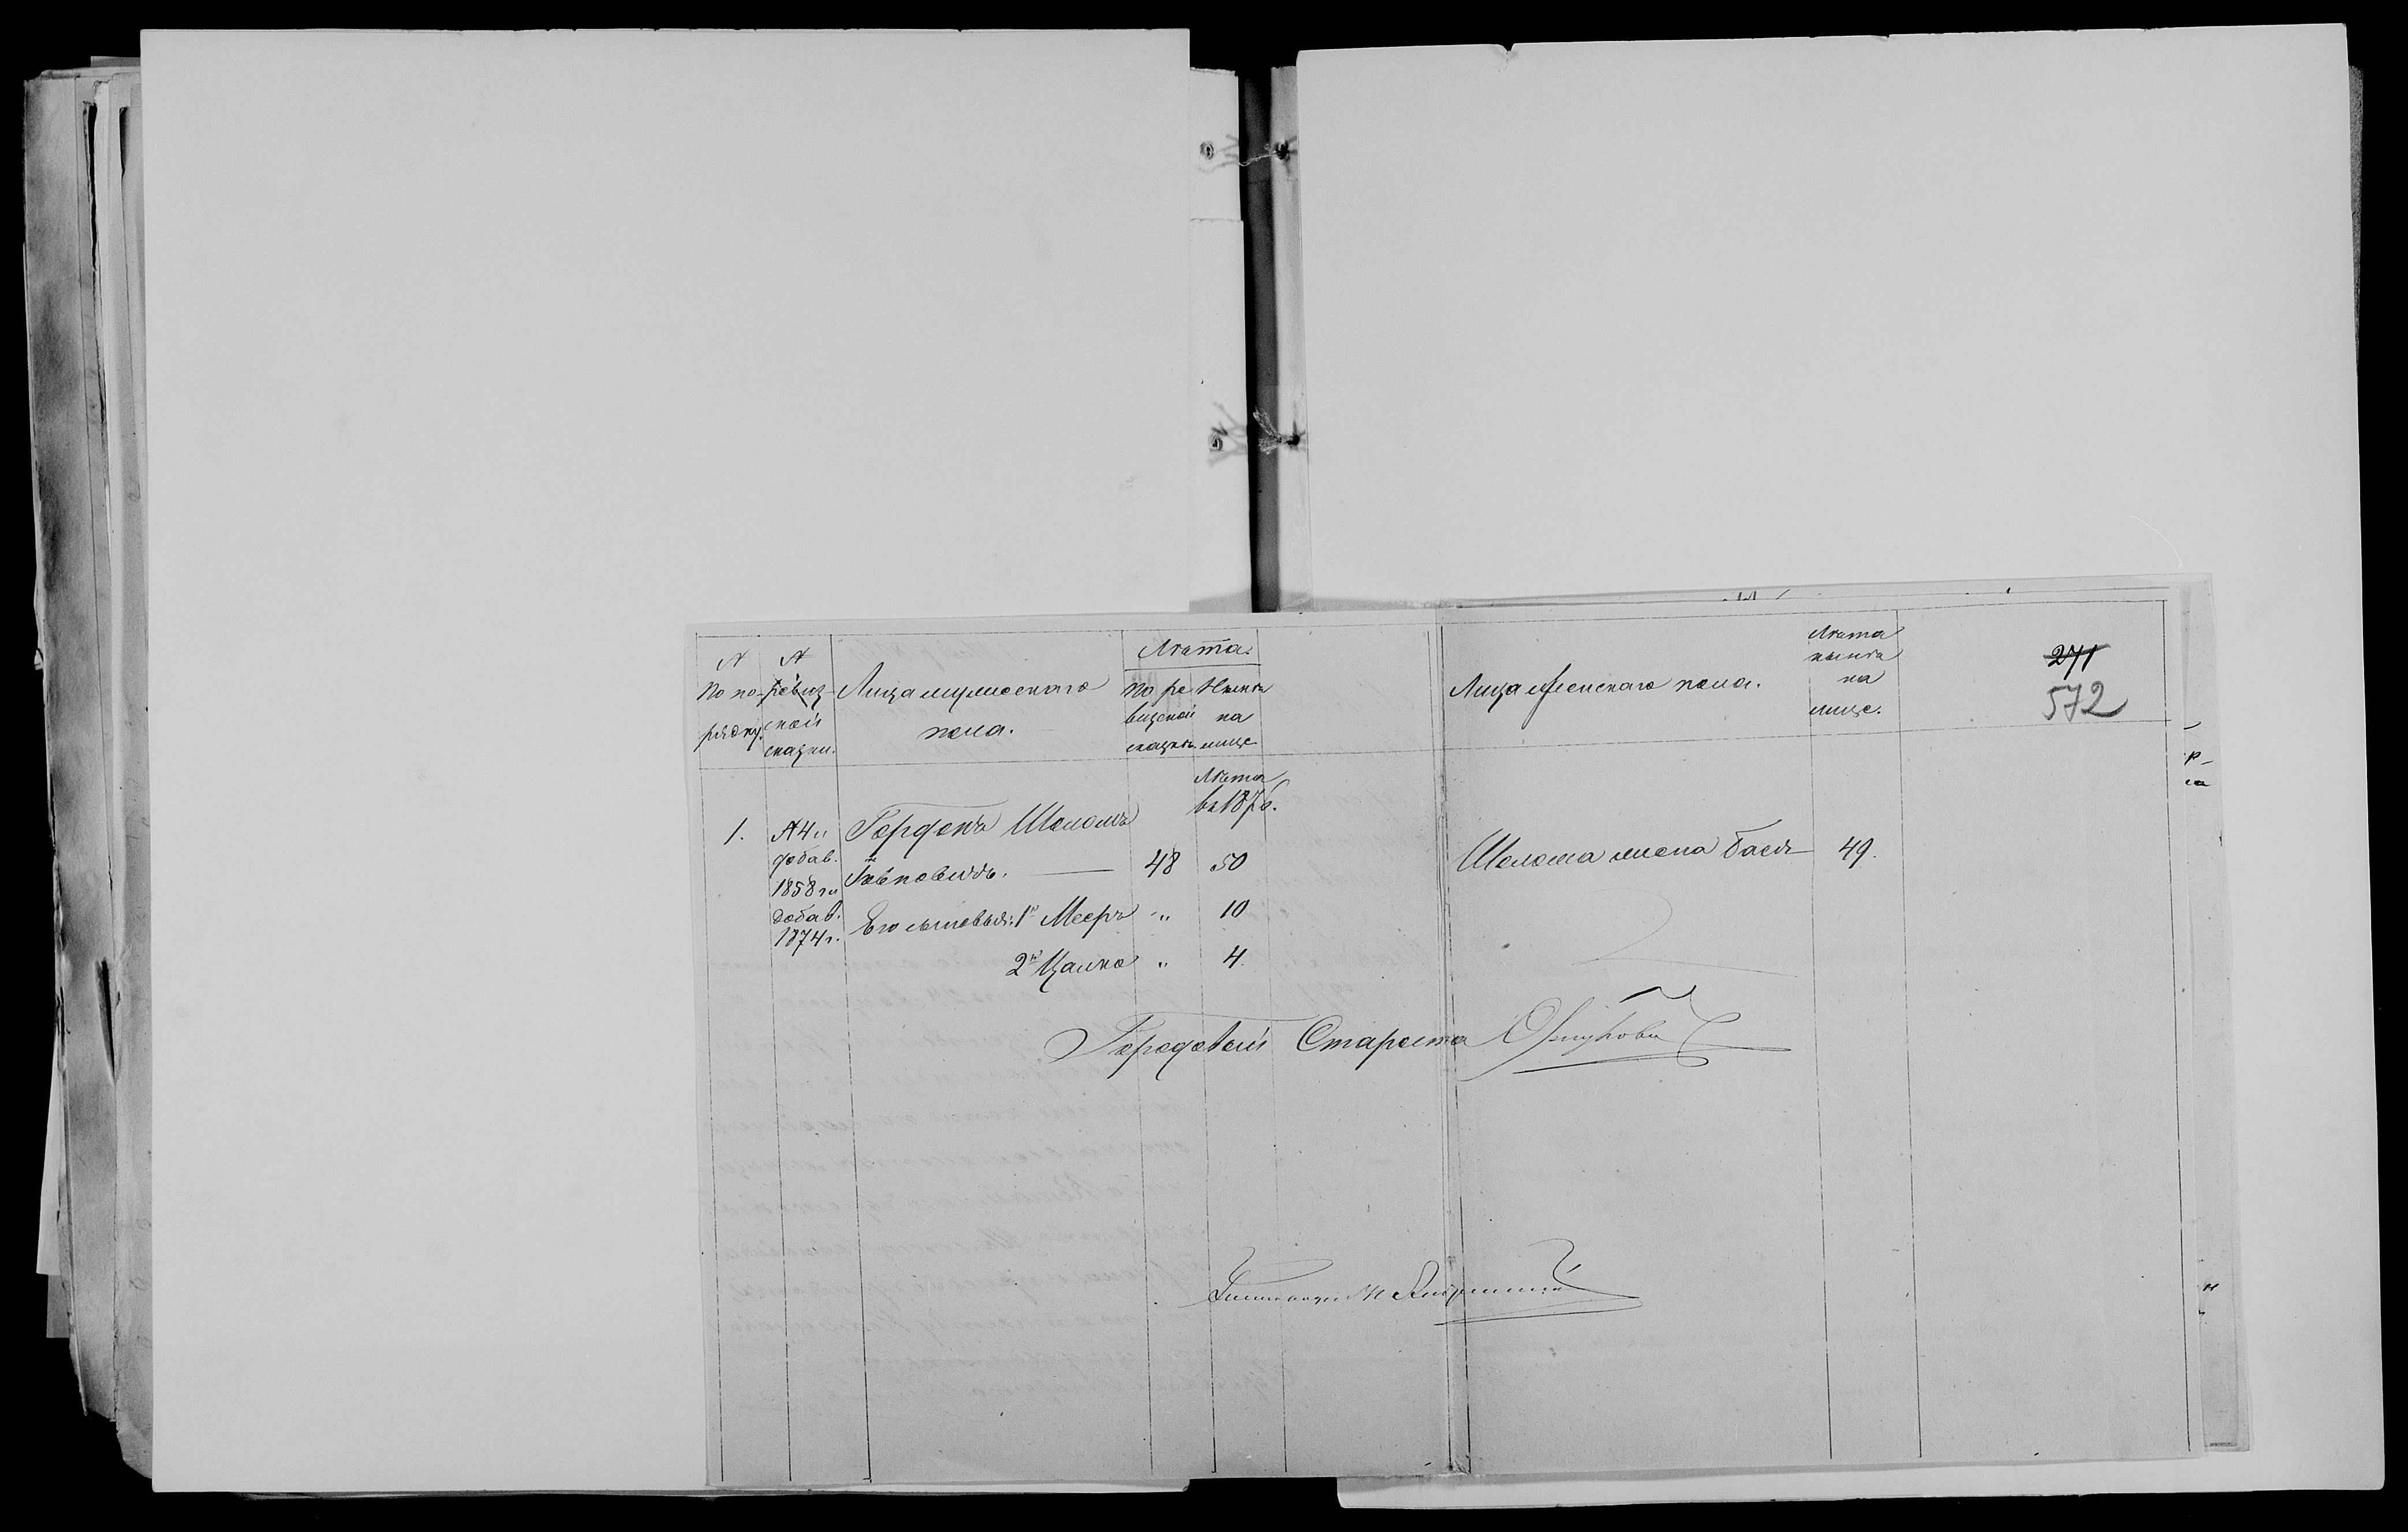 № по порядку.
№ ревизской сказки.
Лица мужскаго
пола.
Лѣта.
По ревизской сказкѣ
Нынѣ на лице
Лѣта
въ 1876.
1. №4 и Гордонъ Шоломъ
добав.
1858 г. и 48 50
добав. Его сыновья: 1й Мееръ " 10
1874 г.
2й Цалко " 4.
Лица женскаго пола.
Лѣта
нынѣ
на
лице.
271
572
Шолома жена Бася 49.
Городовой Староста